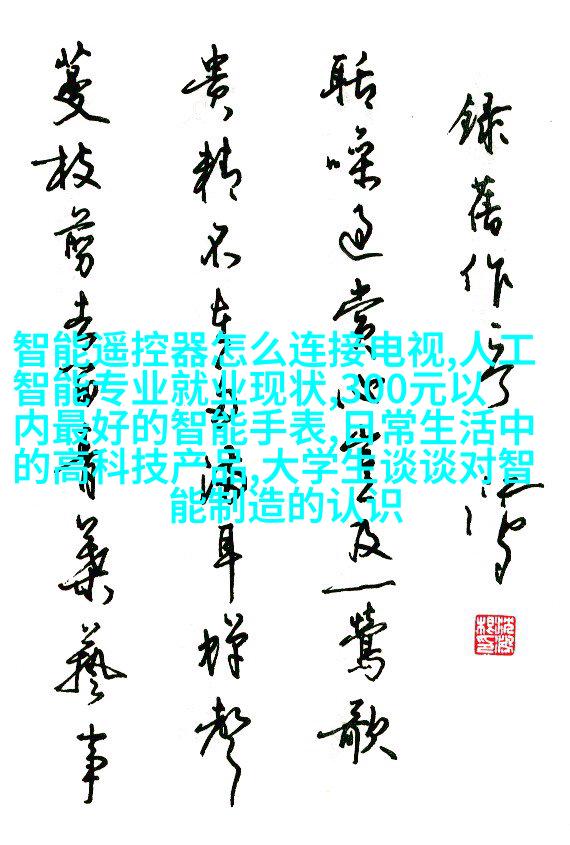 智能遥控器怎么连接电视,人工
智能专业就业现状,300元以
内最好的智能手表,日常生活中
的高科技产品,大学生谈谈对智
能制造的认识
蔓枝剪去菁華藝事
贵精不在多滿耳蝉聲
聒噪過賞心豈及一鶯歌
録舊作